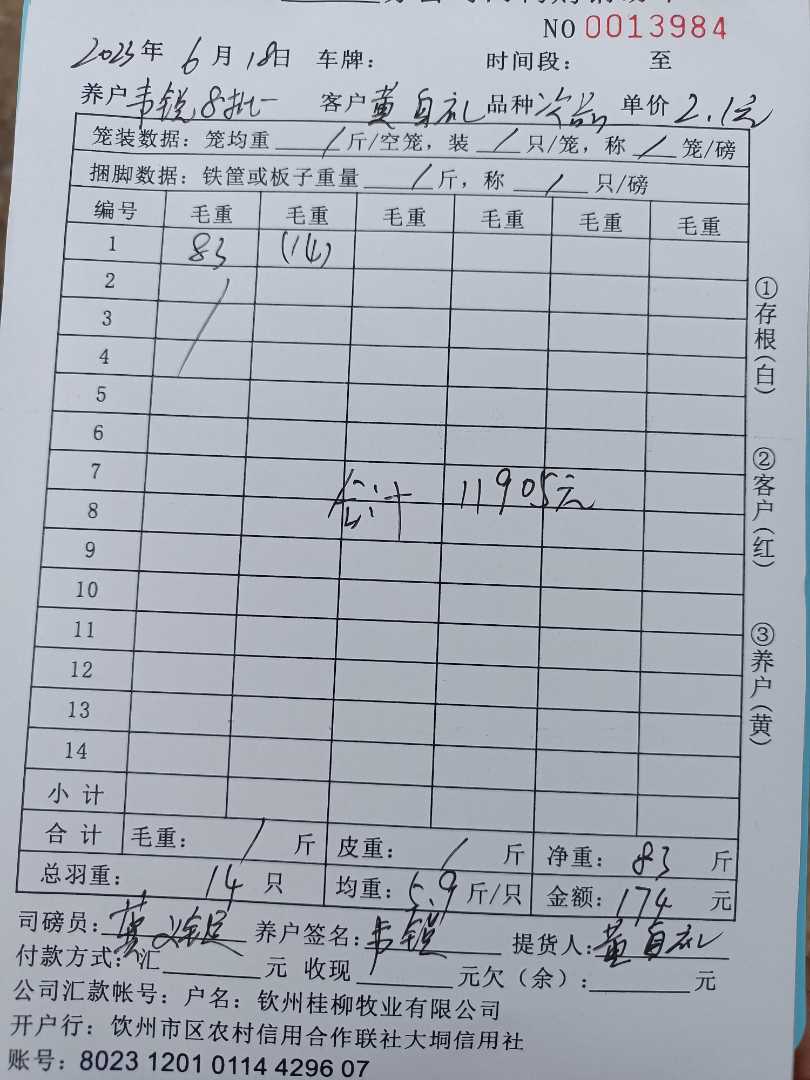 NO 0013984
2023年 6月 18日 车牌: 时间段: 至
养户韦锐8批一 客户黄自礼 品种次品 单价2.1元
笼装数据: 笼均重 / 斤/空笼, 装 / 只/笼, 称 / 笼/磅
捆脚数据: 铁筐或板子重量 / 斤, 称 / 只/磅
编号 毛重 毛重 毛重 毛重 毛重 毛重
1 83 (14)
2
3
4
5
6
7
总计 11905元
8
9
10
11
12
13
14
小计
合计 毛重: / 斤 皮重: / 斤 净重: 83 斤
总羽重: 14 只 均重: 5.9 斤/只 金额: 174 元
司磅员: 黄 养户签名: 韦锐 提货人: 黄自礼
付款方式: 汇 元 收现 元欠(余): 元
公司汇款帐号: 户名: 钦州桂柳牧业有限公司
开户行: 饮州市区农村信用合作联社大垌信用社
账号: 8023 1201 0114 4296 07
①存根(白)
②客户(红)
③养户(黄)